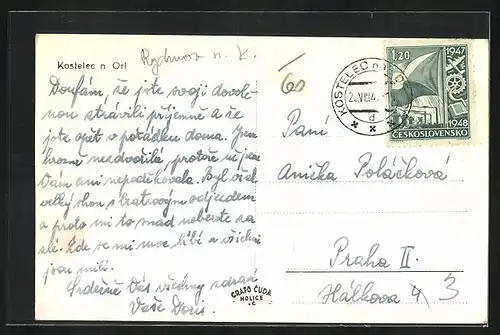 Kostelec n Orl
Rychnov n. K.
Doufám, že jste svoji dovole-
nou strávili příjemně a že
jste opět v pořádku doma. Jsem
hrozně nezdvořilá, protože se jsem
Vám ani nepoděkovala. Byl však
velký shon s bratrovým odjezdem
a proto mi to snad neberete za
zlé. Zde se mi moc líbí a všichni
jsou milí.
Srdečně Vás všechny zdraví
Vaše Doris.
60
KOSTELEC n. ORL.
2.VIII.4
d
1,20
1947
1948
ČESKOSLOVENSKO
Paní
Anička Poláčková
Praha II.
Hálkova 4
3
GRAFO ČUDA
HOLICE